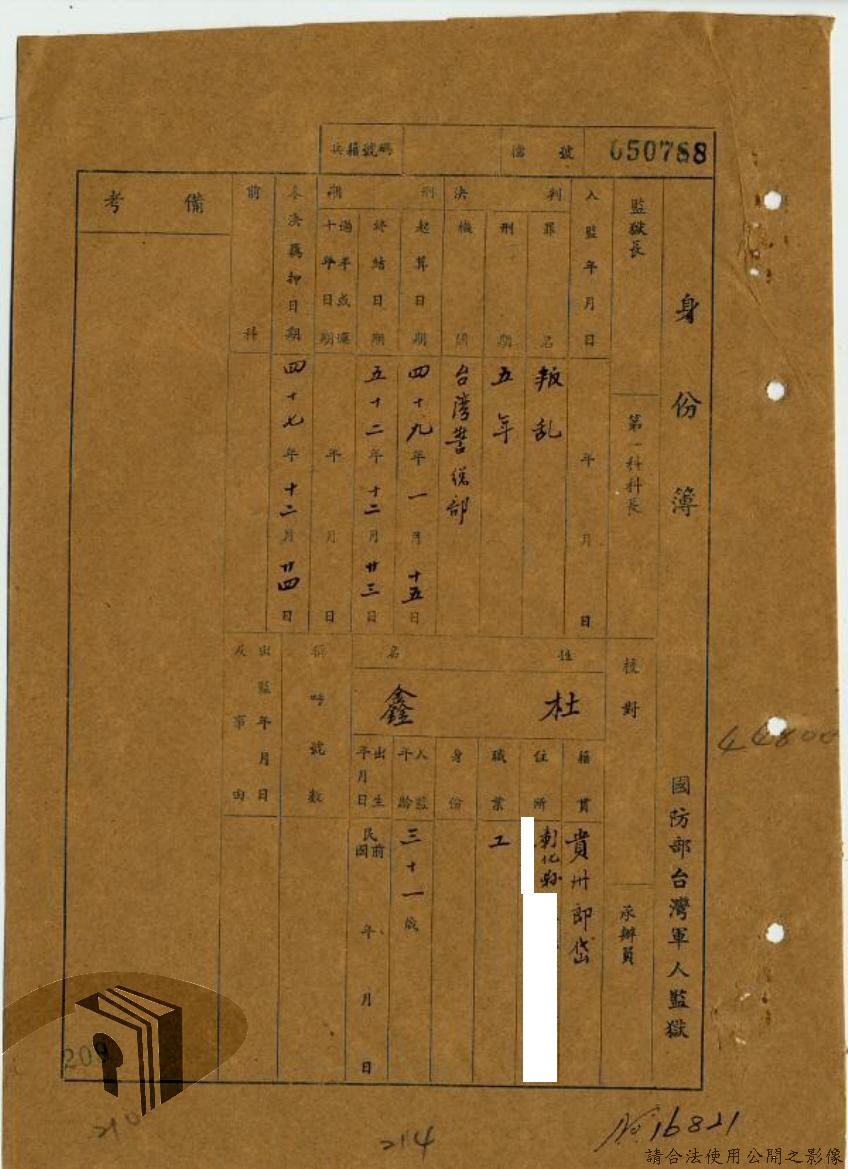 兵籍號碼
檔號 050788
身份簿
國防部台灣軍人監獄
監獄長
第一科科長
校對
承辦員
入監年月日
年 月 日
判決
罪名
叛乱
刑期
五年
機關
台湾警總部
刑期
起算日期
四十九年一月十五日
終結日期
五十二年十二月廿三日
過半或逾十年日期
年 月 日
未決羈押日期
四十七年十二月廿四日
前科
備考
姓名
杜鑫
籍貫
貴州郎岱
住所
彰化縣
職業
工
身份
入監年齡
三十一歲
出生年月日
民國前 年 月 日
稱呼號數
出監年月日及事由
44800
209
210
214
No 16821
請合法使用公開之影像